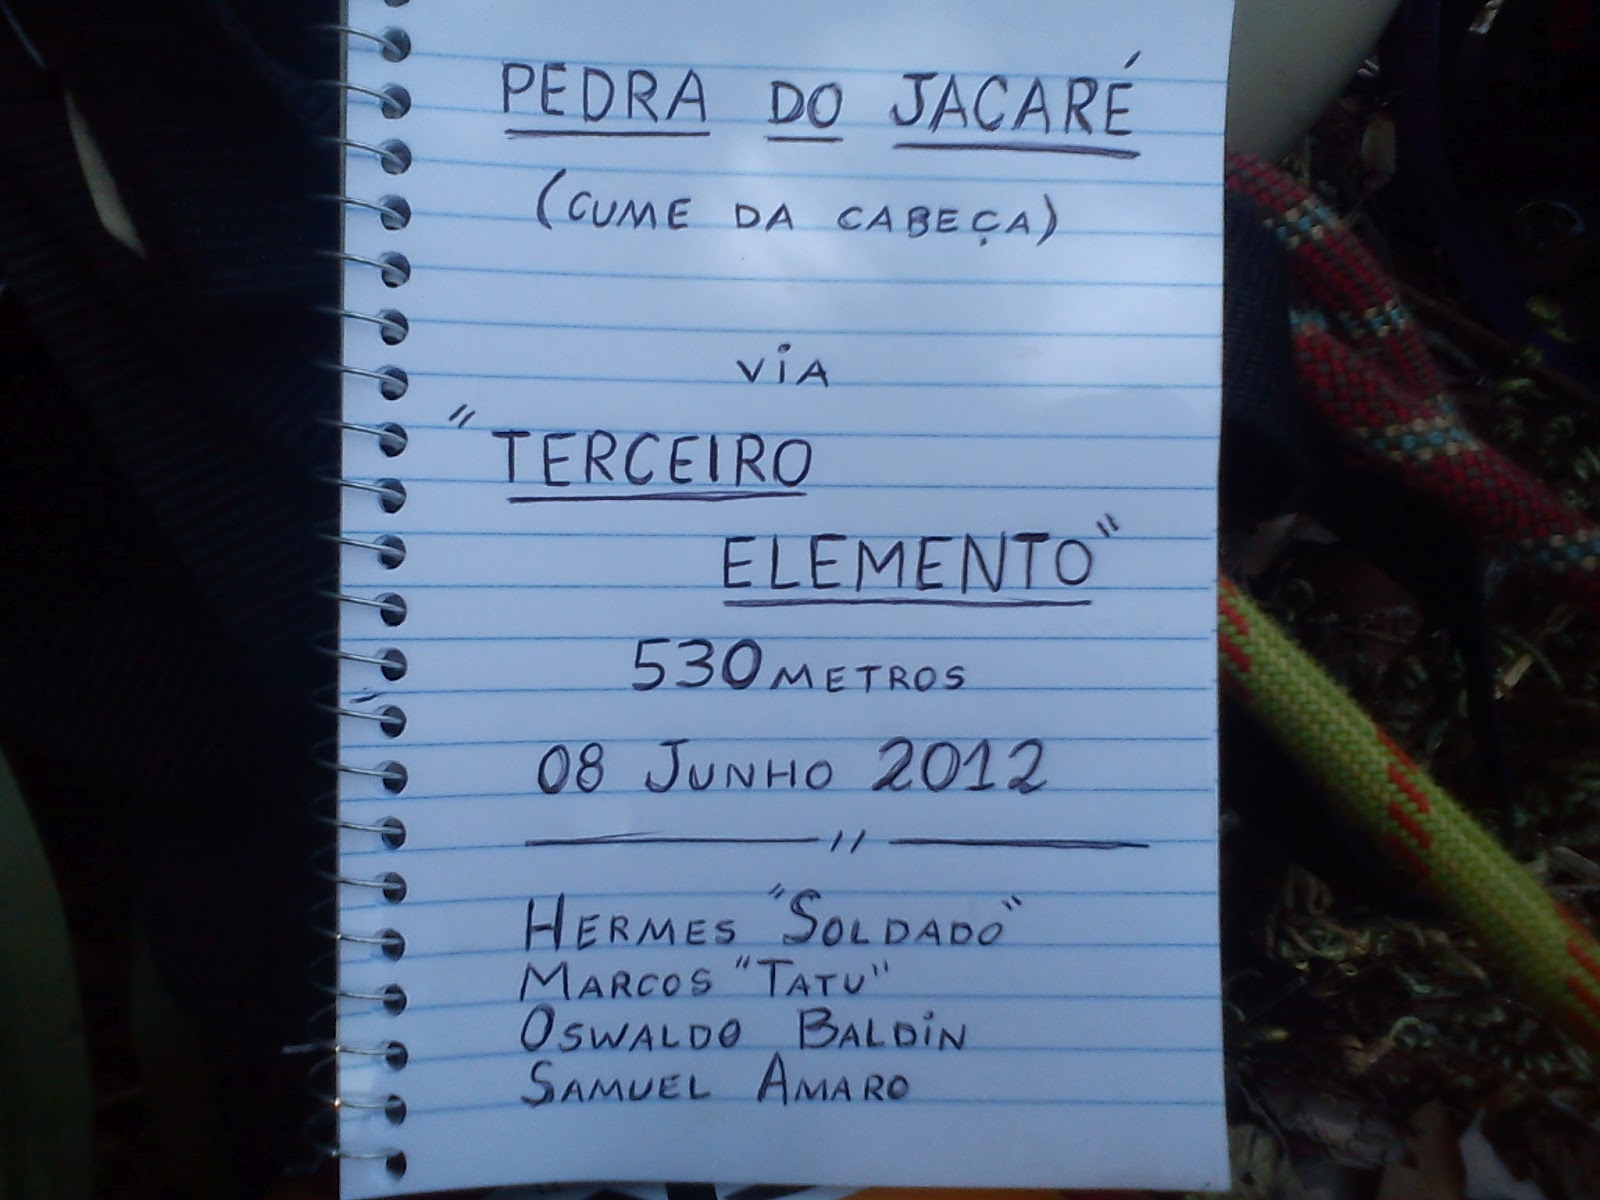 PEDRA DO JACARÉ
(CUME DA CABEÇA)
VIA
"TERCEIRO
ELEMENTO"
530 METROS
08 JUNHO 2012
HERMES "SOLDADO"
MARCOS "TATU"
OSWALDO BALDIN
SAMUEL AMARO